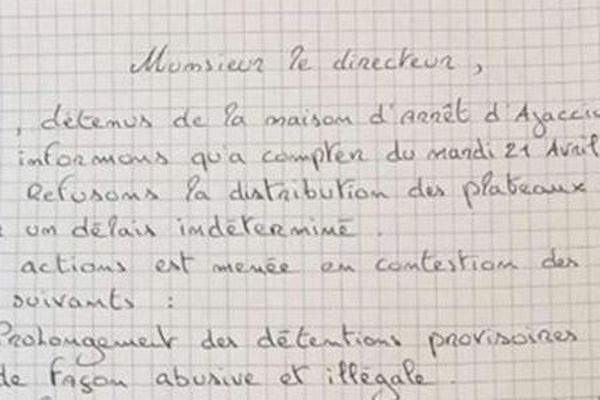 Monsieur le directeur,
, détenus de la maison d'arrêt d'Ajaccio
informons qu'a compter du mardi 21 Avril
Refusons la distribution des plateaux
un délais indéterminé.
actions est menée en contestion des
suivants :
Prolongement des détentions provisoires
de façon abusive et illégale.